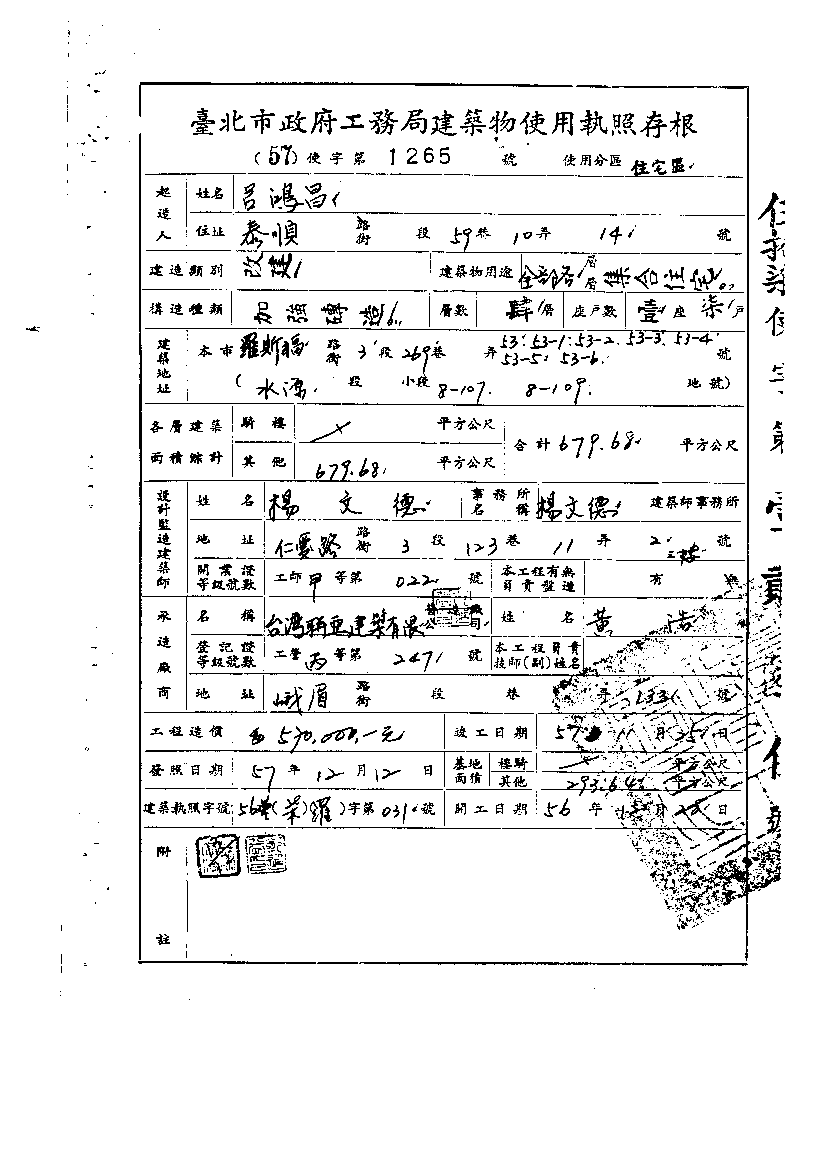 臺北市政府工務局建築物使用執照存根
(57)使字第1265號 使用分區 住宅區
起造人 姓名 呂鴻昌
住址 泰順 路街 段 59巷 10弄 14 號
建造類別 改建 建築物用途 全部 層層 集合住宅
構造種類 加強磚造 層數 肆層 座戶數 壹座 柒戶
建築地址 本市 羅斯福 路街 3段 269巷 弄 53.53-1.53-2.53-3.53-4 53-5.53-6. 號
(水源 段 小段 8-107. 8-109. 地號)
各層建築面積綜計 騎樓 平方公尺 合計 679.68 平方公尺
其他 679.68 平方公尺
設計監造建築師 姓名 楊文德 事務所名稱 楊文德 建築師事務所
地址 仁愛路 路街 3段 123巷 11弄 2 號
開業證等級號數 工師甲等第 022 號 本工程有無負責監造 有 無
承造廠商 名稱 建築有限公司 姓名 黃浩
登記證等級號數 工營丙等第 2471 號 本工程負責技師(副)姓名
地址 峨眉 路街 段 巷 弄 133 號
工程造價 570,000,-元 竣工日期 57 11月25日
發照日期 57年12月12日 基地面積 樓騎 平方公尺
其他 293.64 平方公尺
建築執照字號 56 ( )字第031 號 開工日期 56年 月 日
附註
使字第壹貳